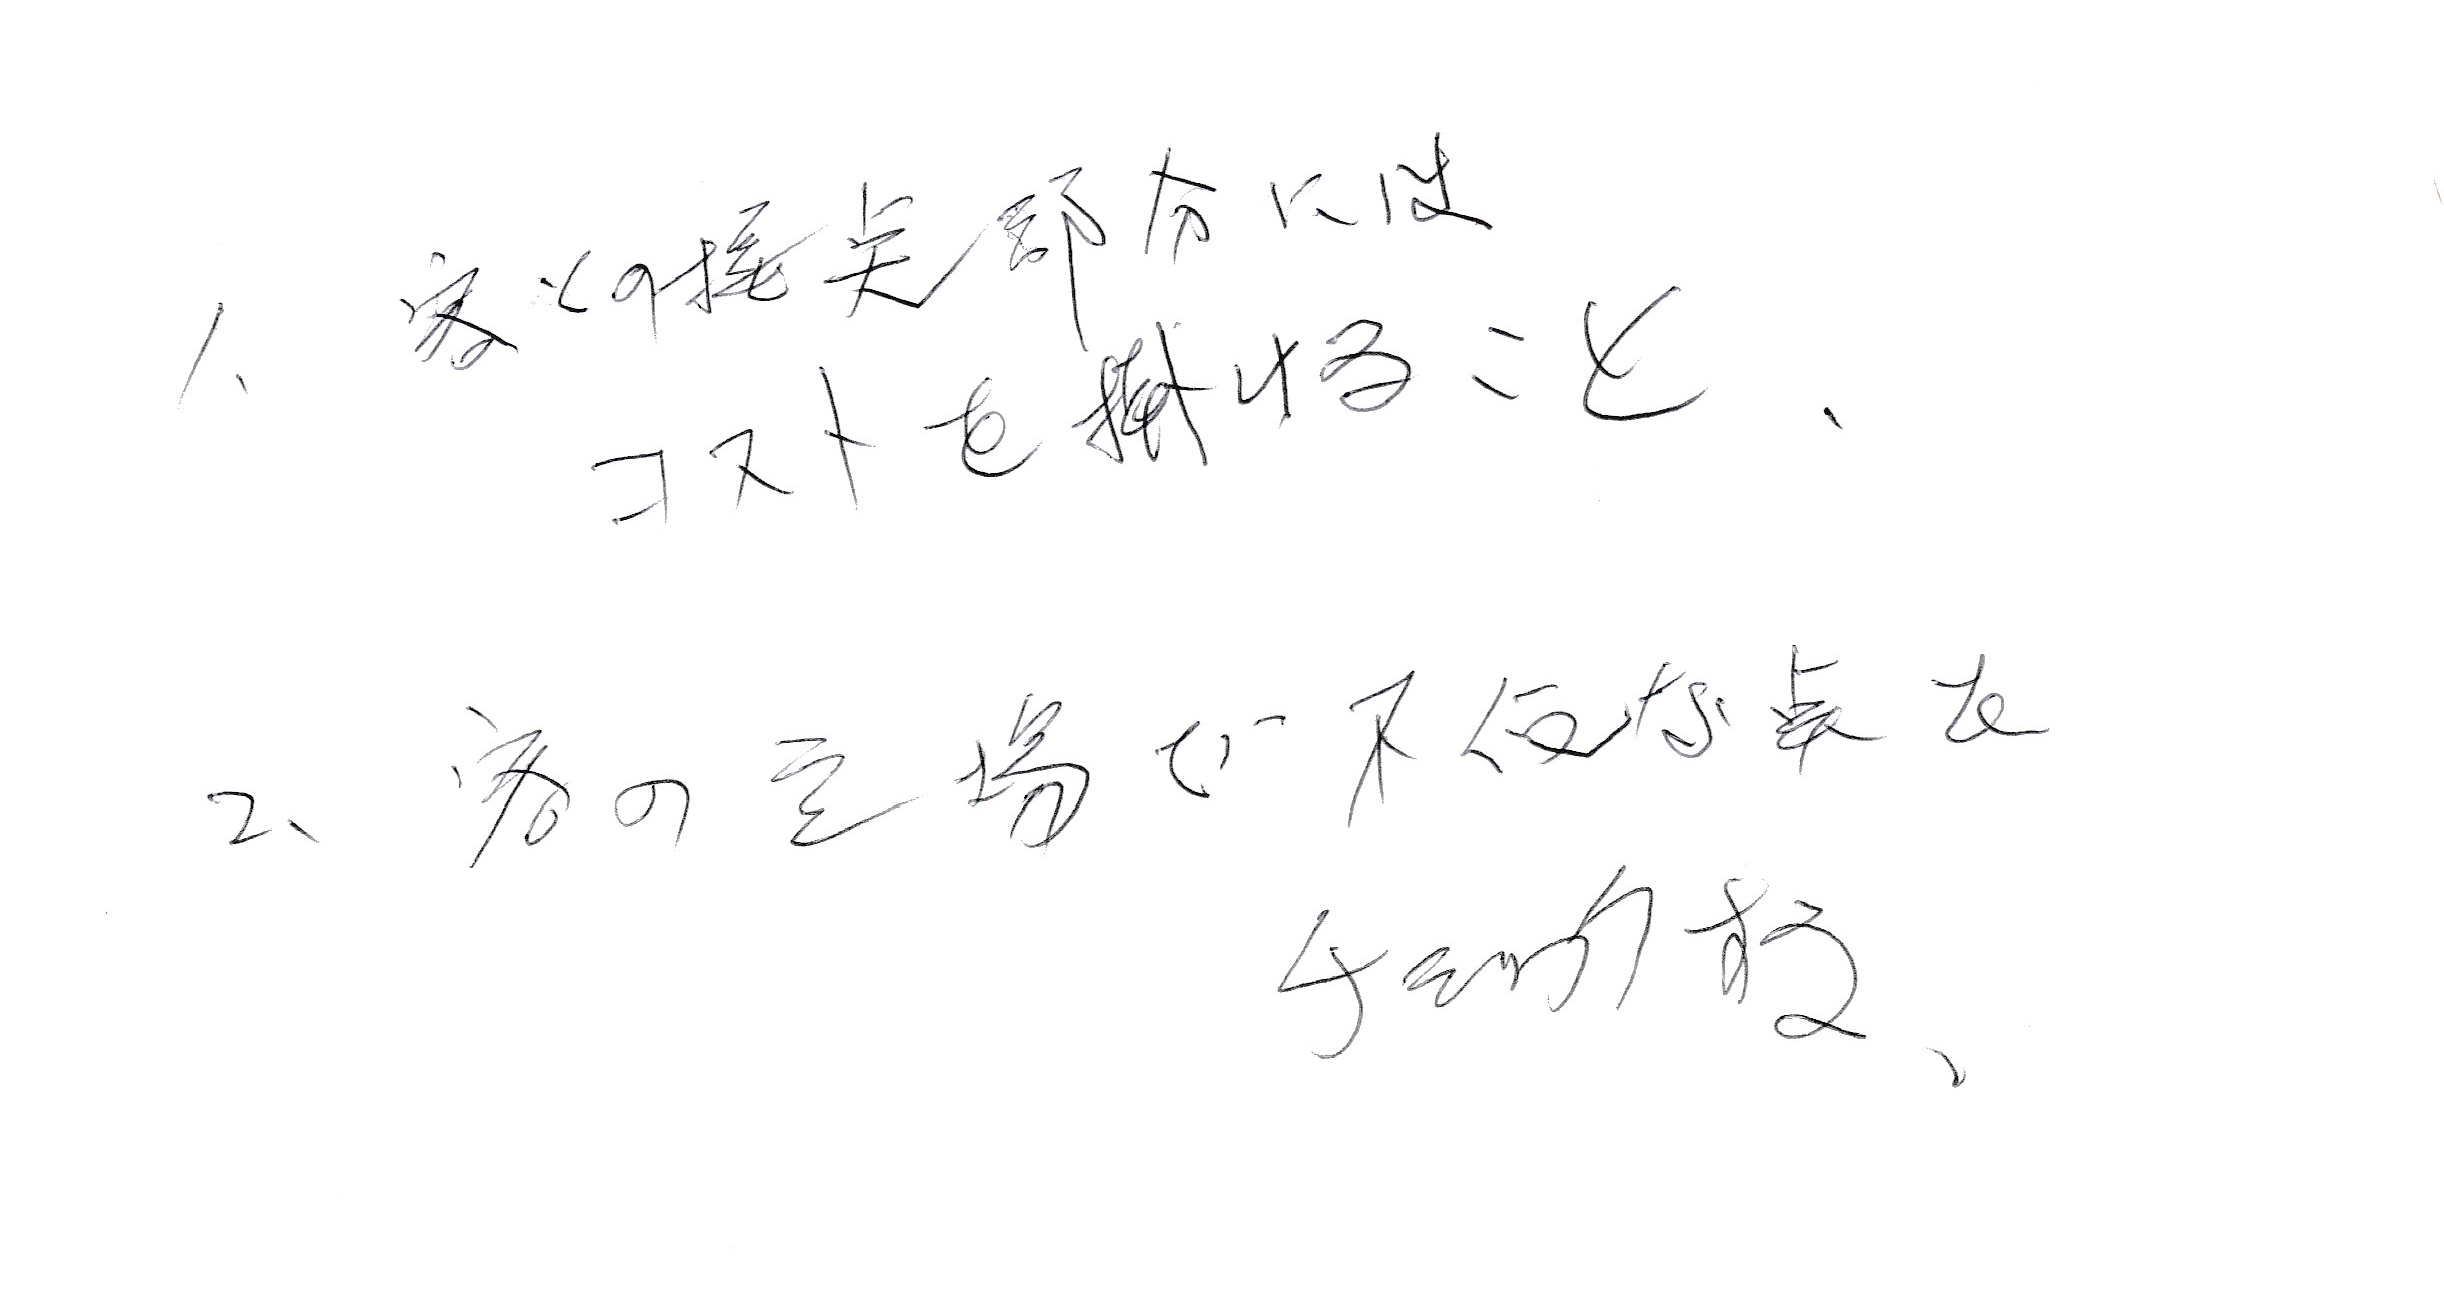 1、客との接点部分には
コストを掛けること、
2、客の立場で不便な点を